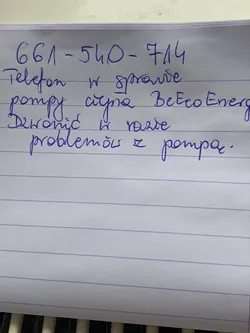 661-540-714
Telefon w sprawie
pompy ciepła BeEcoEnerg
Dzwonić w razie
problemów z pompą.